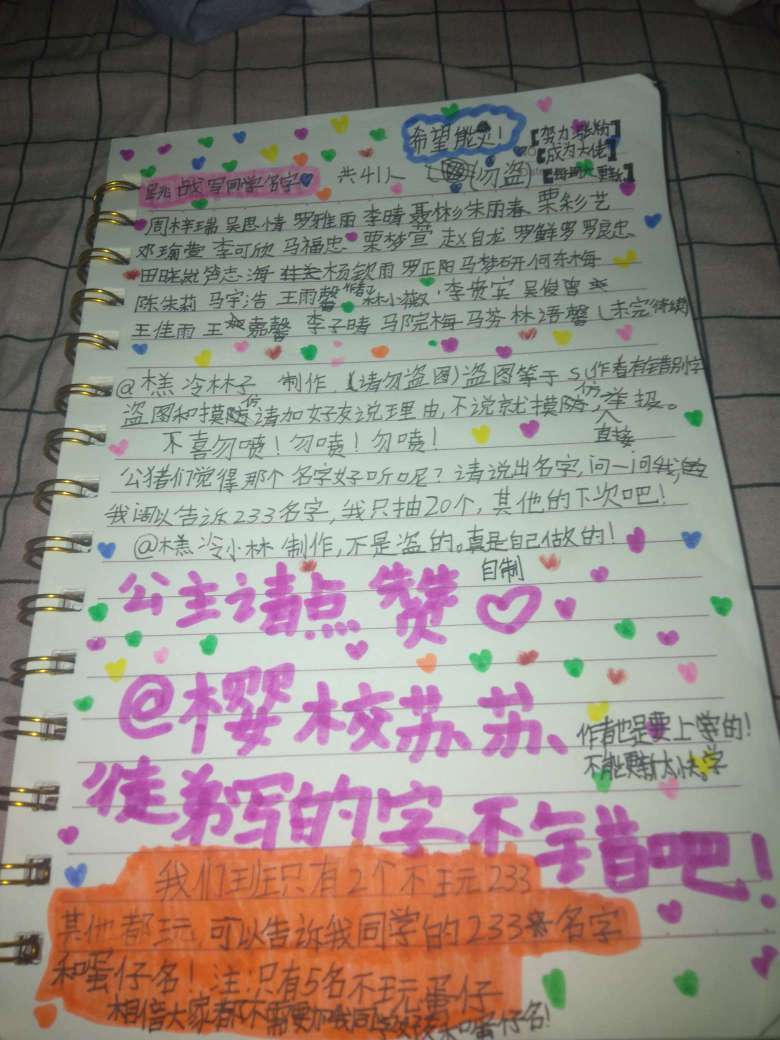 希望能火！
【努力涨粉】
【成为大佬】
【每周六更新】
跳战写同学名字 共41人 （勿盗）
周梓瑞 吴思情 罗雅丽 李晴 聂彬彬 朱雨春 栗彩艺
邓瑜萱 李可欣 马福忠 栗梦萱 赵自龙 罗鲜罗 罗良忠
田晓岚 笱志海 杨钦雨 罗正阳 马梦研 何东梅
陈朱莉 马宇浩 王雨馨 作者 林小薇 李贵宾 吴俊曾
王佳雨 王嘉馨 李子晴 马院梅 马芬 林语馨（未完待续）
@糕冷林子 制作，（请勿盗图）盗图等于S（作者有错别字
盗图和摸仿请加好友说理由，不说就摸仿，直接举报。
不喜勿喷！勿喷！勿喷！
公猪们觉得那个名字好听呢？请说出名字，问一问我，
我可以告诉233名字，我只抽20个，其他的下次吧！
@糕冷小林 制作，不是盗的。真是自己做的！
自制
公主请点赞
@樱校苏苏、
作者也是要上学的！
不能更新太快。
徒弟写的字不错吧！
我们班只有2个不玩233
其他都玩，可以告诉我同学的233名字
和蛋仔名！注：只有5名不玩蛋仔
相信大家都不需要加我同学